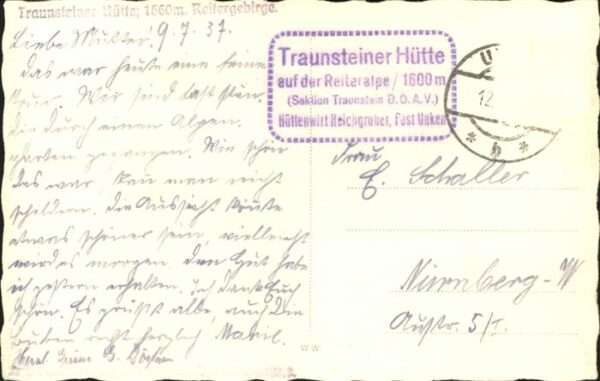 Traunsteiner Hütte, 1660m. Reitergebirge.
Liebe Mutter! 9.7.37.
Das war heute eine feine
Tour. Wir sind fast
die durch einen Alpen-
garten gegangen. Wie schön
das war, kan man nicht
schildern. Die Aussicht könnte
etwas schöner sein, vielleicht
wird es morgen. Den Hut habe
ich gestern erhalten. Ich danke Euch
schön. Es grüßt alle, auch die
recht herzlich
Traunsteiner Hütte
auf der Reiteralpe / 1600 m
(Sektion Traunstein D.O.A.V.)
Hüttenwirt Reichgruber, Post Unken
U
12.
* b *
Frau
E. Schaller
Nürnberg-W
Austr. 5/I.